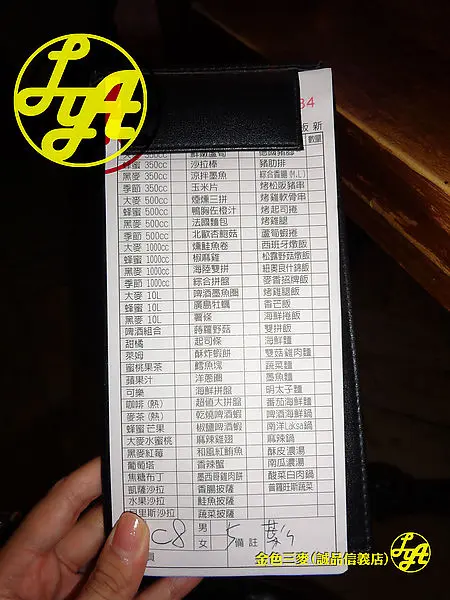 LyA
34
版 新
數量
大麥 350cc 鮮嫩蘆筍 德國豬腳
蜂蜜 350cc 沙拉棒 豬肋排
黑麥 350cc 涼拌墨魚 綜合香腸(M.L)
季節 350cc 玉米片 烤松阪豬串
大麥 500cc 煙燻三拼 烤雞軟骨串
蜂蜜 500cc 鴨胸佐橙汁 烤起司捲
黑麥 500cc 法國麵包 烤雞腿
季節 500cc 北歐杏鮑菇 蘆筍蝦捲
大麥 1000cc 燻鮭魚卷 西班牙燉飯
蜂蜜 1000cc 椒麻雞 松露野菇燉飯
黑麥 1000cc 海陸雙拼 紐奧良什錦飯
季節 1000cc 綜合拼盤 麥香招牌飯
大麥 10L 啤酒墨魚圈 烤雞腿飯
蜂蜜 10L 廣島牡蠣 香芒飯
黑麥 10L 薯條 海鮮捲飯
啤酒組合 蒔蘿野菇 雙拼飯
甜橘 起司條 海鮮麵
萊姆 酥炸蝦餅 雙菇雞肉麵
蜜桃果茶 鱈魚塊 蔬菜麵
蘋果汁 洋蔥圈 墨魚麵
可樂 海鮮拼盤 明太子麵
咖啡(熱) 超值大拼盤 番茄海鮮麵
麥茶(熱) 乾燒啤酒蝦 啤酒海鮮鍋
蜂蜜芒果 椒鹽啤酒蝦 南洋Laksa鍋
大麥水蜜桃 麻辣雞翅 麻辣鍋
黑麥紅莓 和風紅鮒魚 酥皮濃湯
葡萄塔 香辣蟹 南瓜濃湯
焦糖布丁 墨西哥雞肉餅 酸菜白肉鍋
凱薩沙拉 香腸披薩 普羅旺斯蔬菜
水果沙拉 鮭魚披薩
里斯沙拉 蔬菜披薩
C8 男 5 備註
女
員
金色三麥(誠品信義店)
LyA